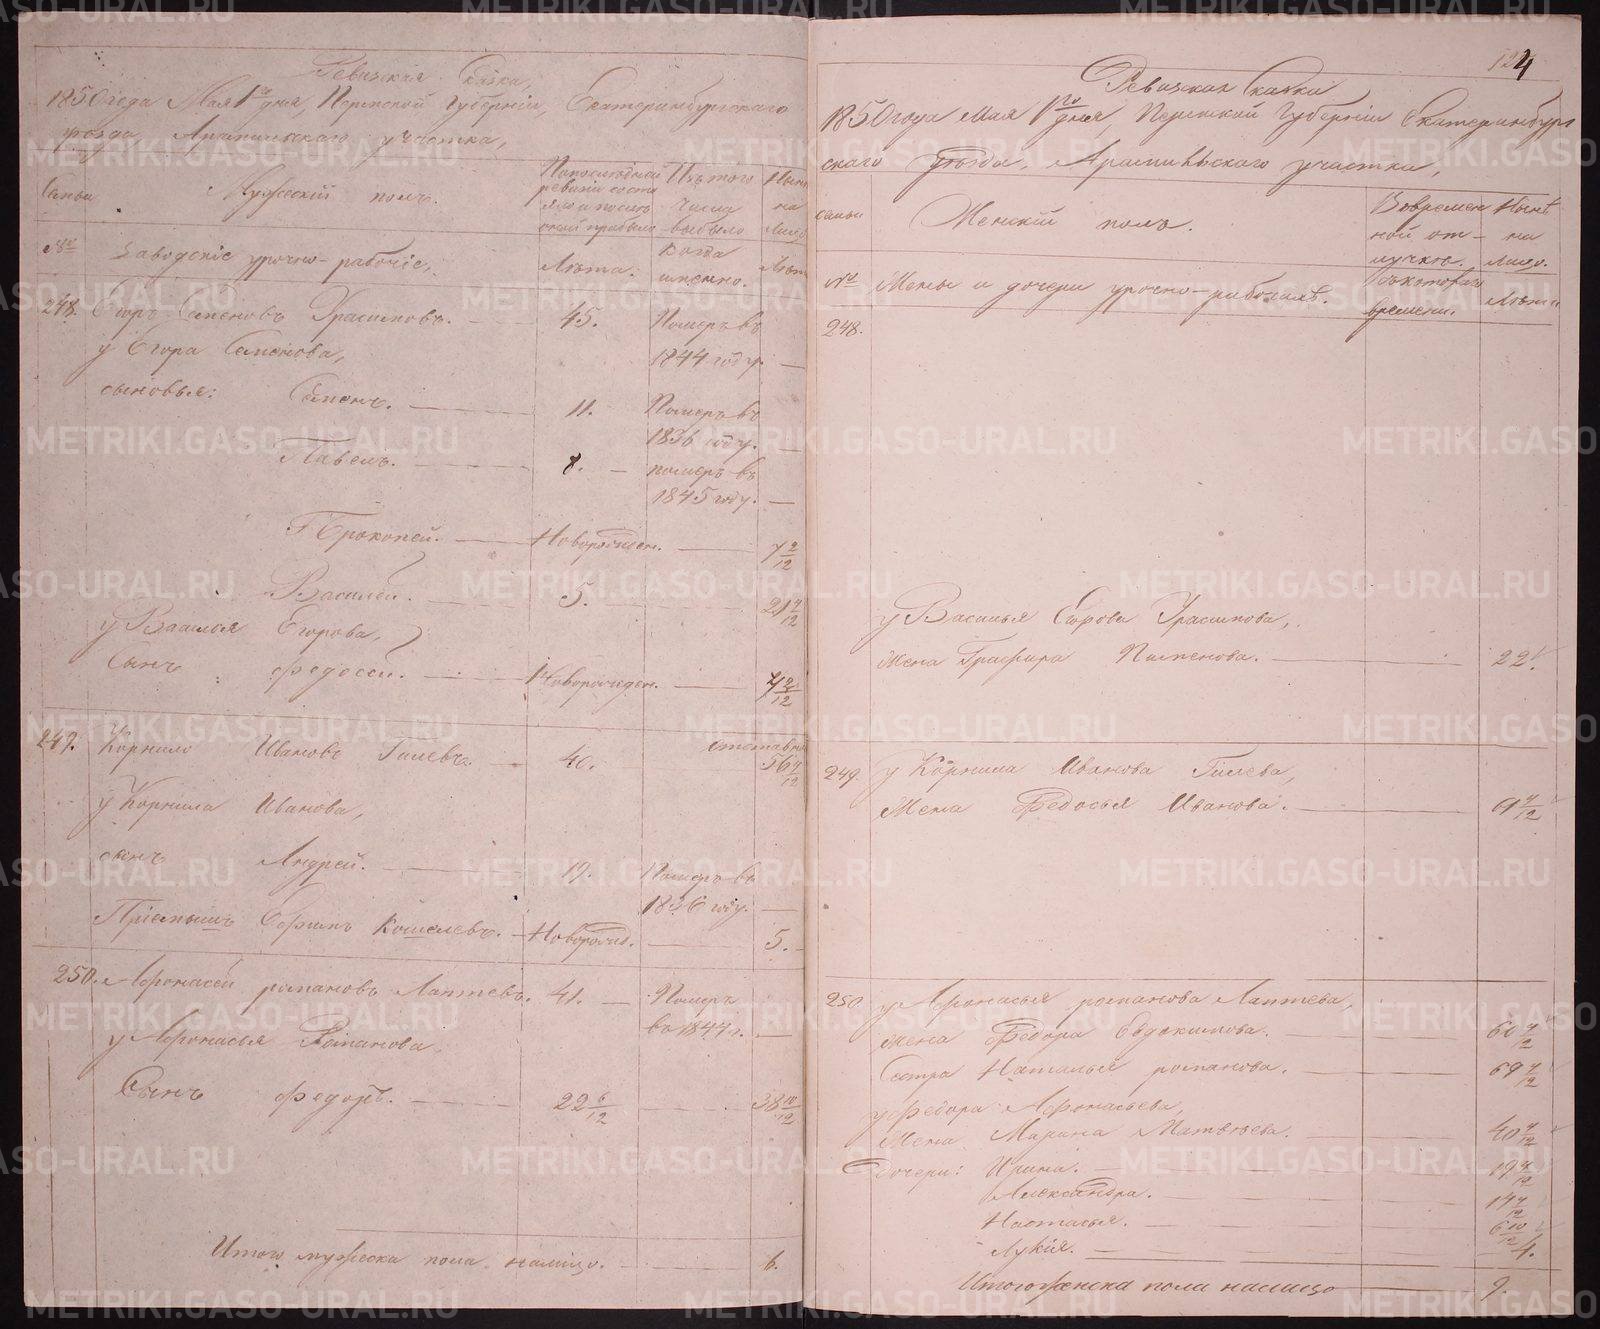 Ревизская Сказка,
1850 года Мая 1го дня, Пермской Губернiи, Екатеринбургскаго
уезда, Арамильскаго участка,
Семьи
Мужескiй полъ.
По последней ревизiи состояло и после оной прибыло
Изъ того числа выбыло
Ныне на лицо
№ Заводскiе урочно-рабочiе,
Лета.
Когда именно.
Лета
248. Егоръ Семеновъ Урасимовъ. 45. Померъ въ 1844 году. —
у Егора Семенова,
сыновья: Семенъ. — 11. Померъ въ 1836 году. —
Павелъ. — 8. — померъ въ 1845 году. —
Прокопей. — Новорожден. — 7 2/12
Василей. — 5. 21 4/12
у Василья Егорова,
Сынъ Федосей. — Новорожден. — 4 2/12
249. Корнило Иванов Гилевъ. — 40. отставн 56 4/12
у Корнила Иванова,
сынъ Андрей. — 19. Померъ въ 1836 году. —
Прiемышъ Ефимъ Кошелевъ. — Новорожд. — 5. —
250. Афонасей романовъ Лаптевъ. 41. — Померъ въ 1847 г. —
у Афонасья Романова
Сынъ Федоръ. — 22 6/12 — 38 10/12
Итого мужеска пола налицо. — 6.
124
Ревизская Сказка
1850 года Мая 1го дня, Пермской Губернiи Екатеринбург
скаго уезда, Арамильскаго участка,
семьи
Женскiй полъ.
Во временной отлучке.
Ныне на лицо.
№ Жены и дочери урочно-рабочихъ.
Съ котораго времени.
Лета
248.
у Василья Егорова Урасимова,
жена Глафира Пименова. — 22.
249. у Корнила Иванова Гилева,
Жена Федосья Иванова. — 61 4/12
250. у Афонасья романова Лаптева,
жена Федора Евдокимова. — 60 4/12
Сестра Наталья романова. — 69 4/12
у Федора Афонасьева,
Жена Марина Матвеева. — 40 4/12
Дочери: Ирина. — 19 4/12
Александра. — 14 4/12
Настасья. — 6 10/12
Лукiя. — 4.
Итого женска пола налицо — 9.
METRIKI.GASO-URAL.RU